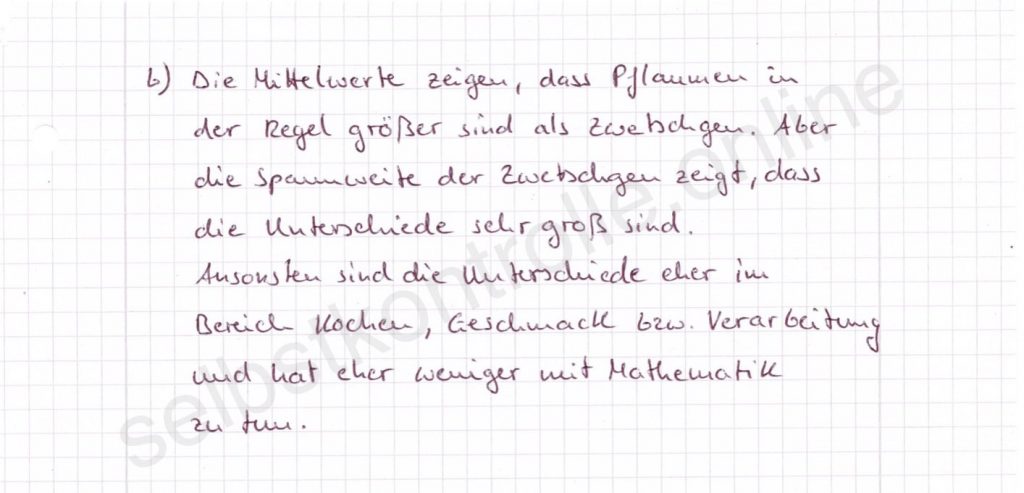 b) Die Mittelwerte zeigen, dass Pflaumen in
der Regel größer sind als Zwetschgen. Aber
die Spannweite der Zwetschgen zeigt, dass
die Unterschiede sehr groß sind.
Ansonsten sind die Unterschiede eher im
Bereich Kochen, Geschmack bzw. Verarbeitung
und hat eher weniger mit Mathematik
zu tun.
selbstkontrolle.online